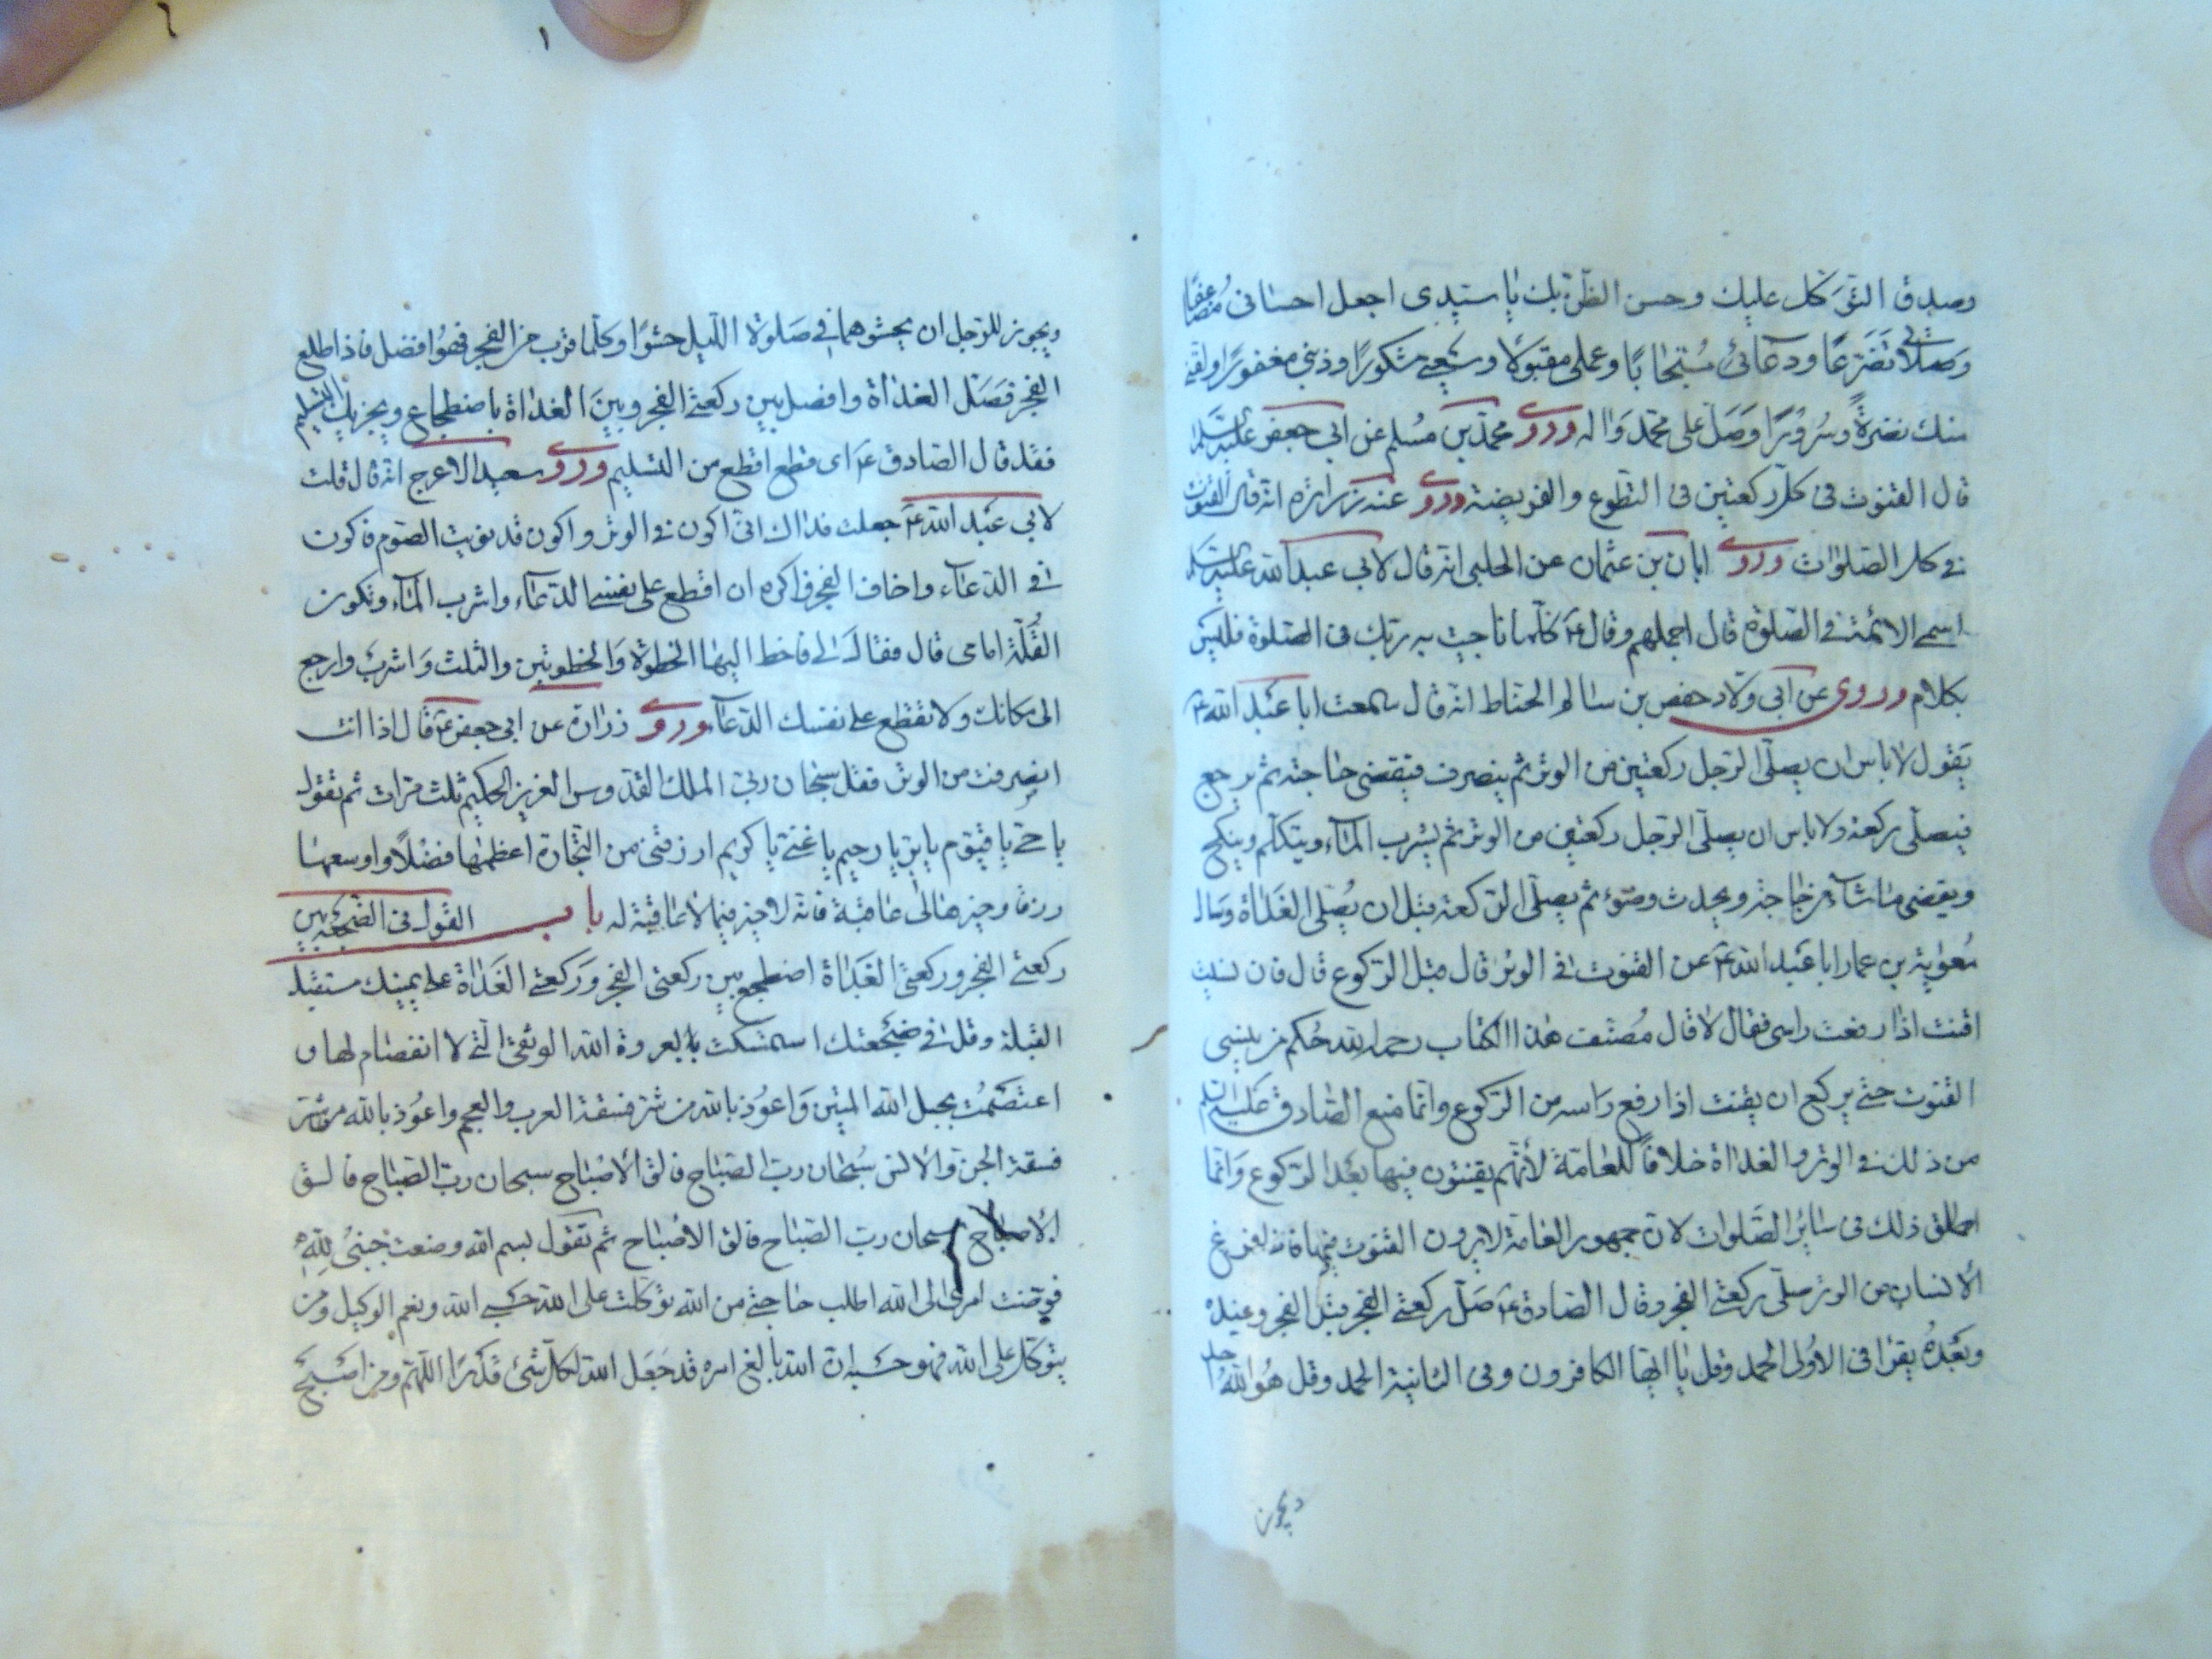 وصدق التوكل عليك وحسن الظن بك يا سيدي اجعل احساني مضاعفا
وصلاتي تضرعا ودعائي مستجابا وعملي مقبولا وسعيي مشكورا وذنبي مغفورا ولقني
منك نضرة وسرورا وصل على محمد واله وروى محمد بن مسلم عن ابي جعفر عليه السلام
قال القنوت في كل ركعتين في التطوع والفريضة وروى عنه زرارة انه قال القنوت
في كل الصلوات وروى ابان بن عثمان عن الحلبي انه قال لابي عبد الله عليه السلام
اسمي الائمة في الصلوة قال اجملهم وقال ع كلما ناجيت به ربك في الصلوة فليس
بكلام وروى عن ابي ولاد حفص بن سالم الحناط انه قال سمعت ابا عبد الله ع
يقول لا باس ان يصلي الرجل ركعتين من الوتر ثم ينصرف فيقضي حاجته ثم يرجع
فيصلي ركعة ولا باس ان يصلي الرجل ركعتين من الوتر ثم يشرب الماء ويتكلم وينكح
ويقضي ما شاء من حاجته ويحدث وضوء ثم يصلي الركعة قبل ان يصلي الغداة وسال
معوية بن عمار ابا عبد الله ع عن القنوت في الوتر قال قبل الركوع قال فان نسيت
اقنت اذا رفعت راسي فقال لا قال مصنف هذا الكتاب رحمه الله حكم من ينسى
القنوت حتى يركع ان يقنت اذا رفع راسه من الركوع وانما منع الصادق عليه السلم
من ذلك في الوتر والغداة خلافا للعامة لأنهم يقنتون فيها بعد الركوع وانما
اطلق ذلك في سائر الصلوات لان جمهور العامة لا يرون القنوت فيها فاذا فرغ
الانسان من الوتر صلى ركعتي الفجر وقال الصادق ع صل ركعتي الفجر قبل الفجر وعنده
وبعده يقرا في الاولى الحمد وقل يا ايها الكافرون وفي الثانية الحمد وقل هو الله احد
ويجوز
ويجوز للرجل ان يحشوهما في صلوة الليل حشوا وكلما قرب من الفجر فهو افضل فاذا طلع
الفجر فصل الغداة وافصل بين ركعتي الفجر وبين الغداة باضطجاع ويجزيك التسليم
فقد قال الصادق ع اى قطع اقطع من التسليم وروى سعيد الاعرج انه قال قلت
لابي عبد الله ع جعلت فداك اني اكون في الوتر واكون قد نويت الصوم فاكون
في الدعاء واخاف الفجر فاكره ان اقطع على نفسي الدعاء واشرب الماء وتكون
القلة امامي قال فقال لي فاخط اليها الخطوة والخطوتين والثلث واشرب وارجع
الى مكانك ولا تقطع على نفسك الدعاء وروى زرارة عن ابي جعفر ع قال اذا انت
انصرفت من الوتر فقل سبحان ربي الملك القدوس العزيز الحكيم ثلث مرات ثم تقول
يا حي يا قيوم يا بر يا رحيم يا غني يا كريم ارزقني من التجارة اعظمها فضلا واوسعها
رزقا وخيرها لي عاقبة فانه لا خير فيما لا عاقبة له باب القول في الضجعة بين
ركعتي الفجر وركعتي الغداة اضطجع بين ركعتي الفجر وركعتي الغداة على يمينك مستقبل
القبلة وقل في ضجعتك استمسكت بالعروة الله الوثقى التي لا انفصام لها و
اعتصمت بحبل الله المتين واعوذ بالله من شر فسقة العرب والعجم واعوذ بالله من شر
فسقة الجن والانس سبحان رب الصباح فالق الاصباح سبحان رب الصباح فالق
الاصباح سبحان رب الصباح فالق الاصباح ثم تقول بسم الله وضعت جنبي لله
فوضت امري الى الله اطلب حاجتي من الله توكلت على الله حسبي الله ونعم الوكيل ومن
يتوكل على الله فهو حسبه ان الله بالغ امره قد جعل الله لكل شئ قدرا اللهم ومن اصبح